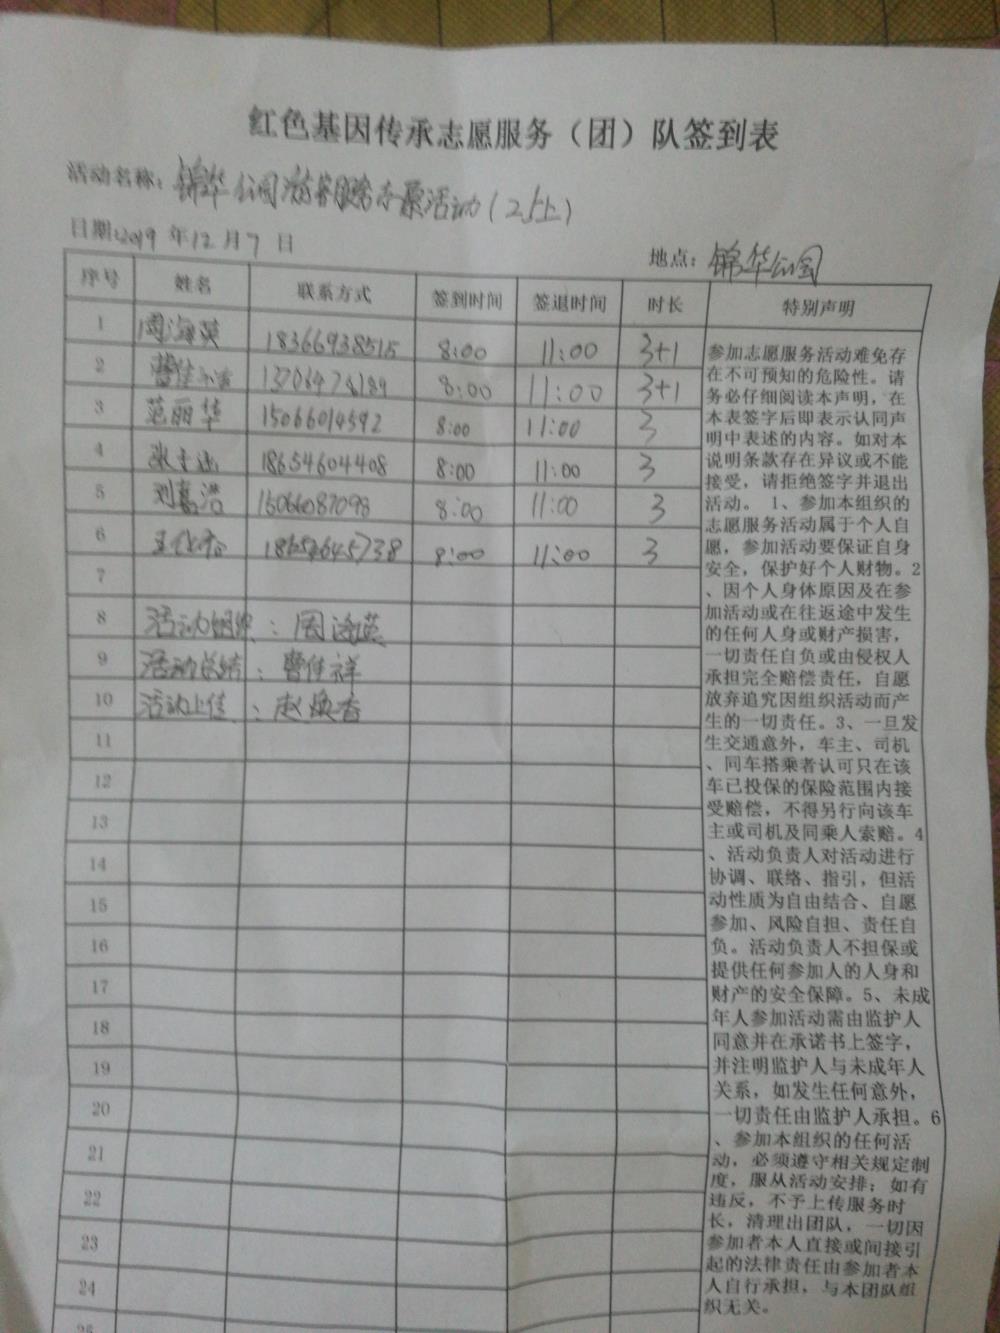 红色基因传承志愿服务（团）队签到表
活动名称：锦华公园游客服务志愿活动(2上)
日期:2019 年12月7 日
地点：锦华公园
序号 姓名 联系方式 签到时间 签退时间 时长 特别声明
1 周海英 18366938515 8:00 11:00 3+1
2 曹佳祥 13706478189 8:00 11:00 3+1
3 范丽华 15066014592 8:00 11:00 3
4 18654604408 8:00 11:00 3
5 刘嘉浩 15066087098 8:00 11:00 3
6 18654645738 8:00 11:00 3
7
8 活动组织：周海英
9 活动总结：曹佳祥
10 活动上传：赵焕香
11
12
13
14
15
16
17
18
19
20
21
22
23
24
25
参加志愿服务活动难免存
在不可预知的危险性。请
务必仔细阅读本声明，在
本表签字后即表示认同声
明中表述的内容。如对本
说明条款存在异议或不能
接受，请拒绝签字并退出
活动。 1、参加本组织的
志愿服务活动属于个人自
愿，参加活动要保证自身
安全，保护好个人财物。2
、因个人身体原因及在参
加活动或在往返途中发生
的任何人身或财产损害，
一切责任自负或由侵权人
承担完全赔偿责任，自愿
放弃追究因组织活动而产
生的一切责任。3、一旦发
生交通意外，车主、司机
、同车搭乘者认可只在该
车已投保的保险范围内接
受赔偿，不得另行向该车
主或司机及同乘人索赔。4
、活动负责人对活动进行
协调、联络、指引，但活
动性质为自由结合、自愿
参加、风险自担、责任自
负。活动负责人不担保或
提供任何参加人的人身和
财产的安全保障。5、未成
年人参加活动需由监护人
同意并在承诺书上签字，
并注明监护人与未成年人
关系，如发生任何意外，
一切责任由监护人承担。6
、参加本组织的任何活
动，必须遵守相关规定制
度，服从活动安排；如有
违反，不予上传服务时
长，清理出团队，一切因
参加者本人直接或间接引
起的法律责任由参加者本
人自行承担，与本团队组
织无关。